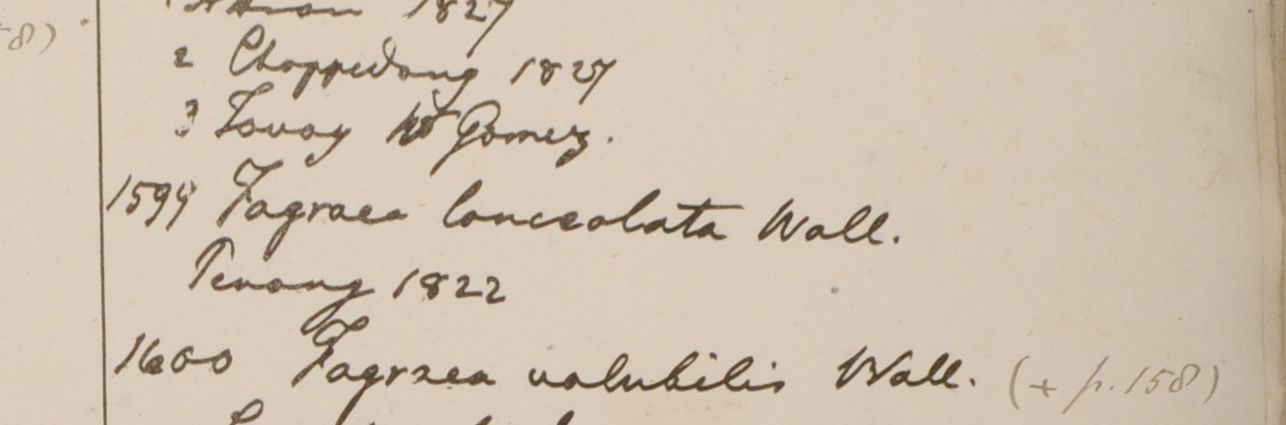 1827
2 Choppedong 1827
3 Tavoy W Gomez.
1599 Fagraea lanceolata Wall.
Penang 1822
1600 Fagraea volubilis Wall. (+ p. 158)